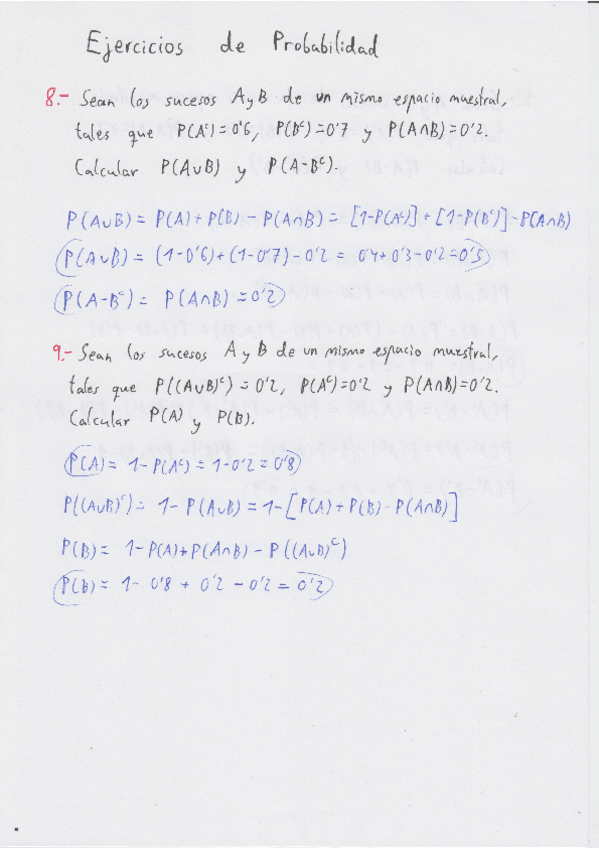 Ejercicios de Probabilidad
8.- Sean los sucesos A y B de un mismo espacio muestral,
tales que P(Aᶜ)=0'6, P(Bᶜ)=0'7 y P(A∩B)=0'2.
Calcular P(A∪B) y P(A-Bᶜ).
P(A∪B)= P(A)+P(B)-P(A∩B)= [1-P(Aᶜ)]+[1-P(Bᶜ)]-P(A∩B)
P(A∪B)= (1-0'6)+(1-0'7)-0'2= 0'4+0'3-0'2=0'5
P(A-Bᶜ)= P(A∩B)=0'2
9.- Sean los sucesos A y B de un mismo espacio muestral,
tales que P((A∪B)ᶜ)=0'2, P(Aᶜ)=0'2 y P(A∩B)=0'2.
Calcular P(A) y P(B).
P(A)= 1-P(Aᶜ)=1-0'2=0'8
P((A∪B)ᶜ)= 1-P(A∪B)=1-[P(A)+P(B)-P(A∩B)]
P(B)= 1-P(A)+P(A∩B)-P((A∪B)ᶜ)
P(b)= 1-0'8+0'2-0'2=0'2